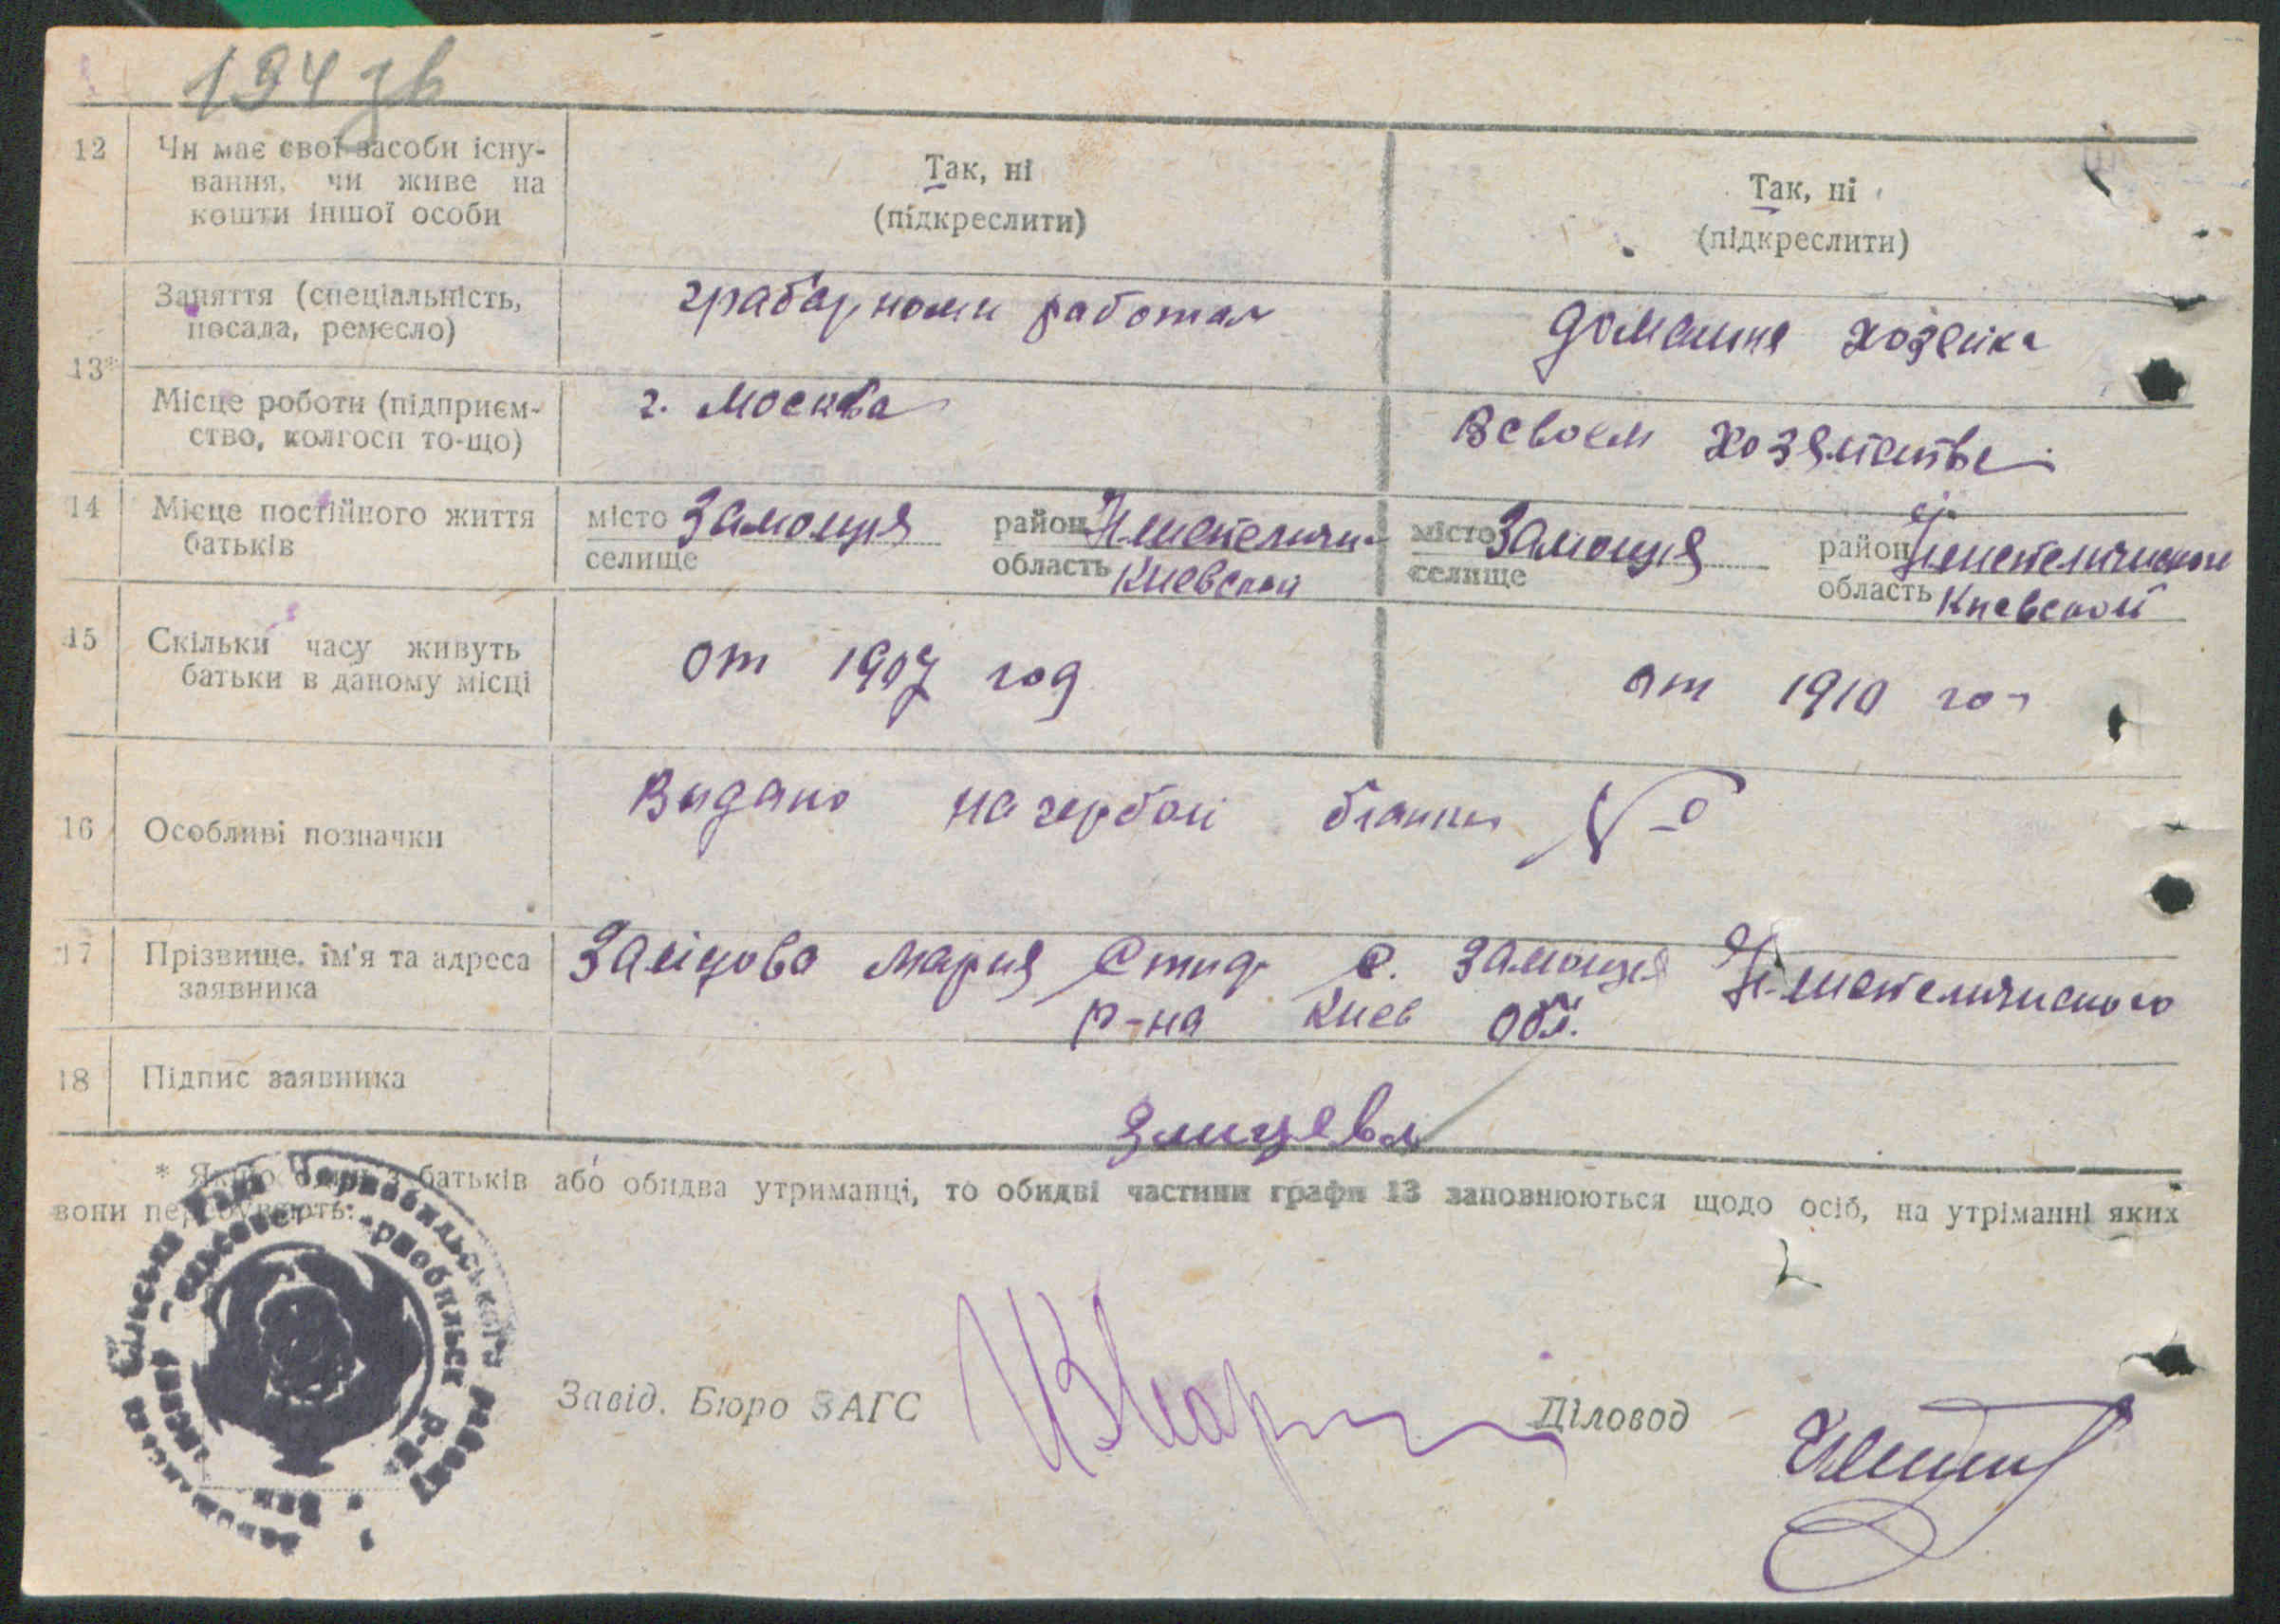 194 зв
12
Чи має свої засоби існу-
вання, чи живе на
кошти іншої особи
Так, ні
(підкреслити)
Так, ні
(підкреслити)
13*
Заняття (спеціальність,
посада, ремесло)
грабарноми работал
домашня хозейка
Місце роботи (підприєм-
ство, колгосп то-що)
г. Москва
В своем хозяйстве
14
Місце постійного життя
батьків
місто
селище
Замощня
район
область
Киевской
місто
селище
Замощня
район
область
Киевской
15
Скільки часу живуть
батьки в даному місці
от 1907 год
от 1910 год
16
Особливі позначки
Видано на гербой бланки №
17
Прізвище, ім'я та адреса
заявника
Мария с. Замощня
р-на Киев обл.
18
Підпис заявника
* Якщо один з батьків або обидва утриманці, то обидві частини графи 13 заповнюються щодо осіб, на утріманні яких
вони перебувають.
Сільська Рада Чорнобильського району
Завід. Бюро ЗАГС
Діловод